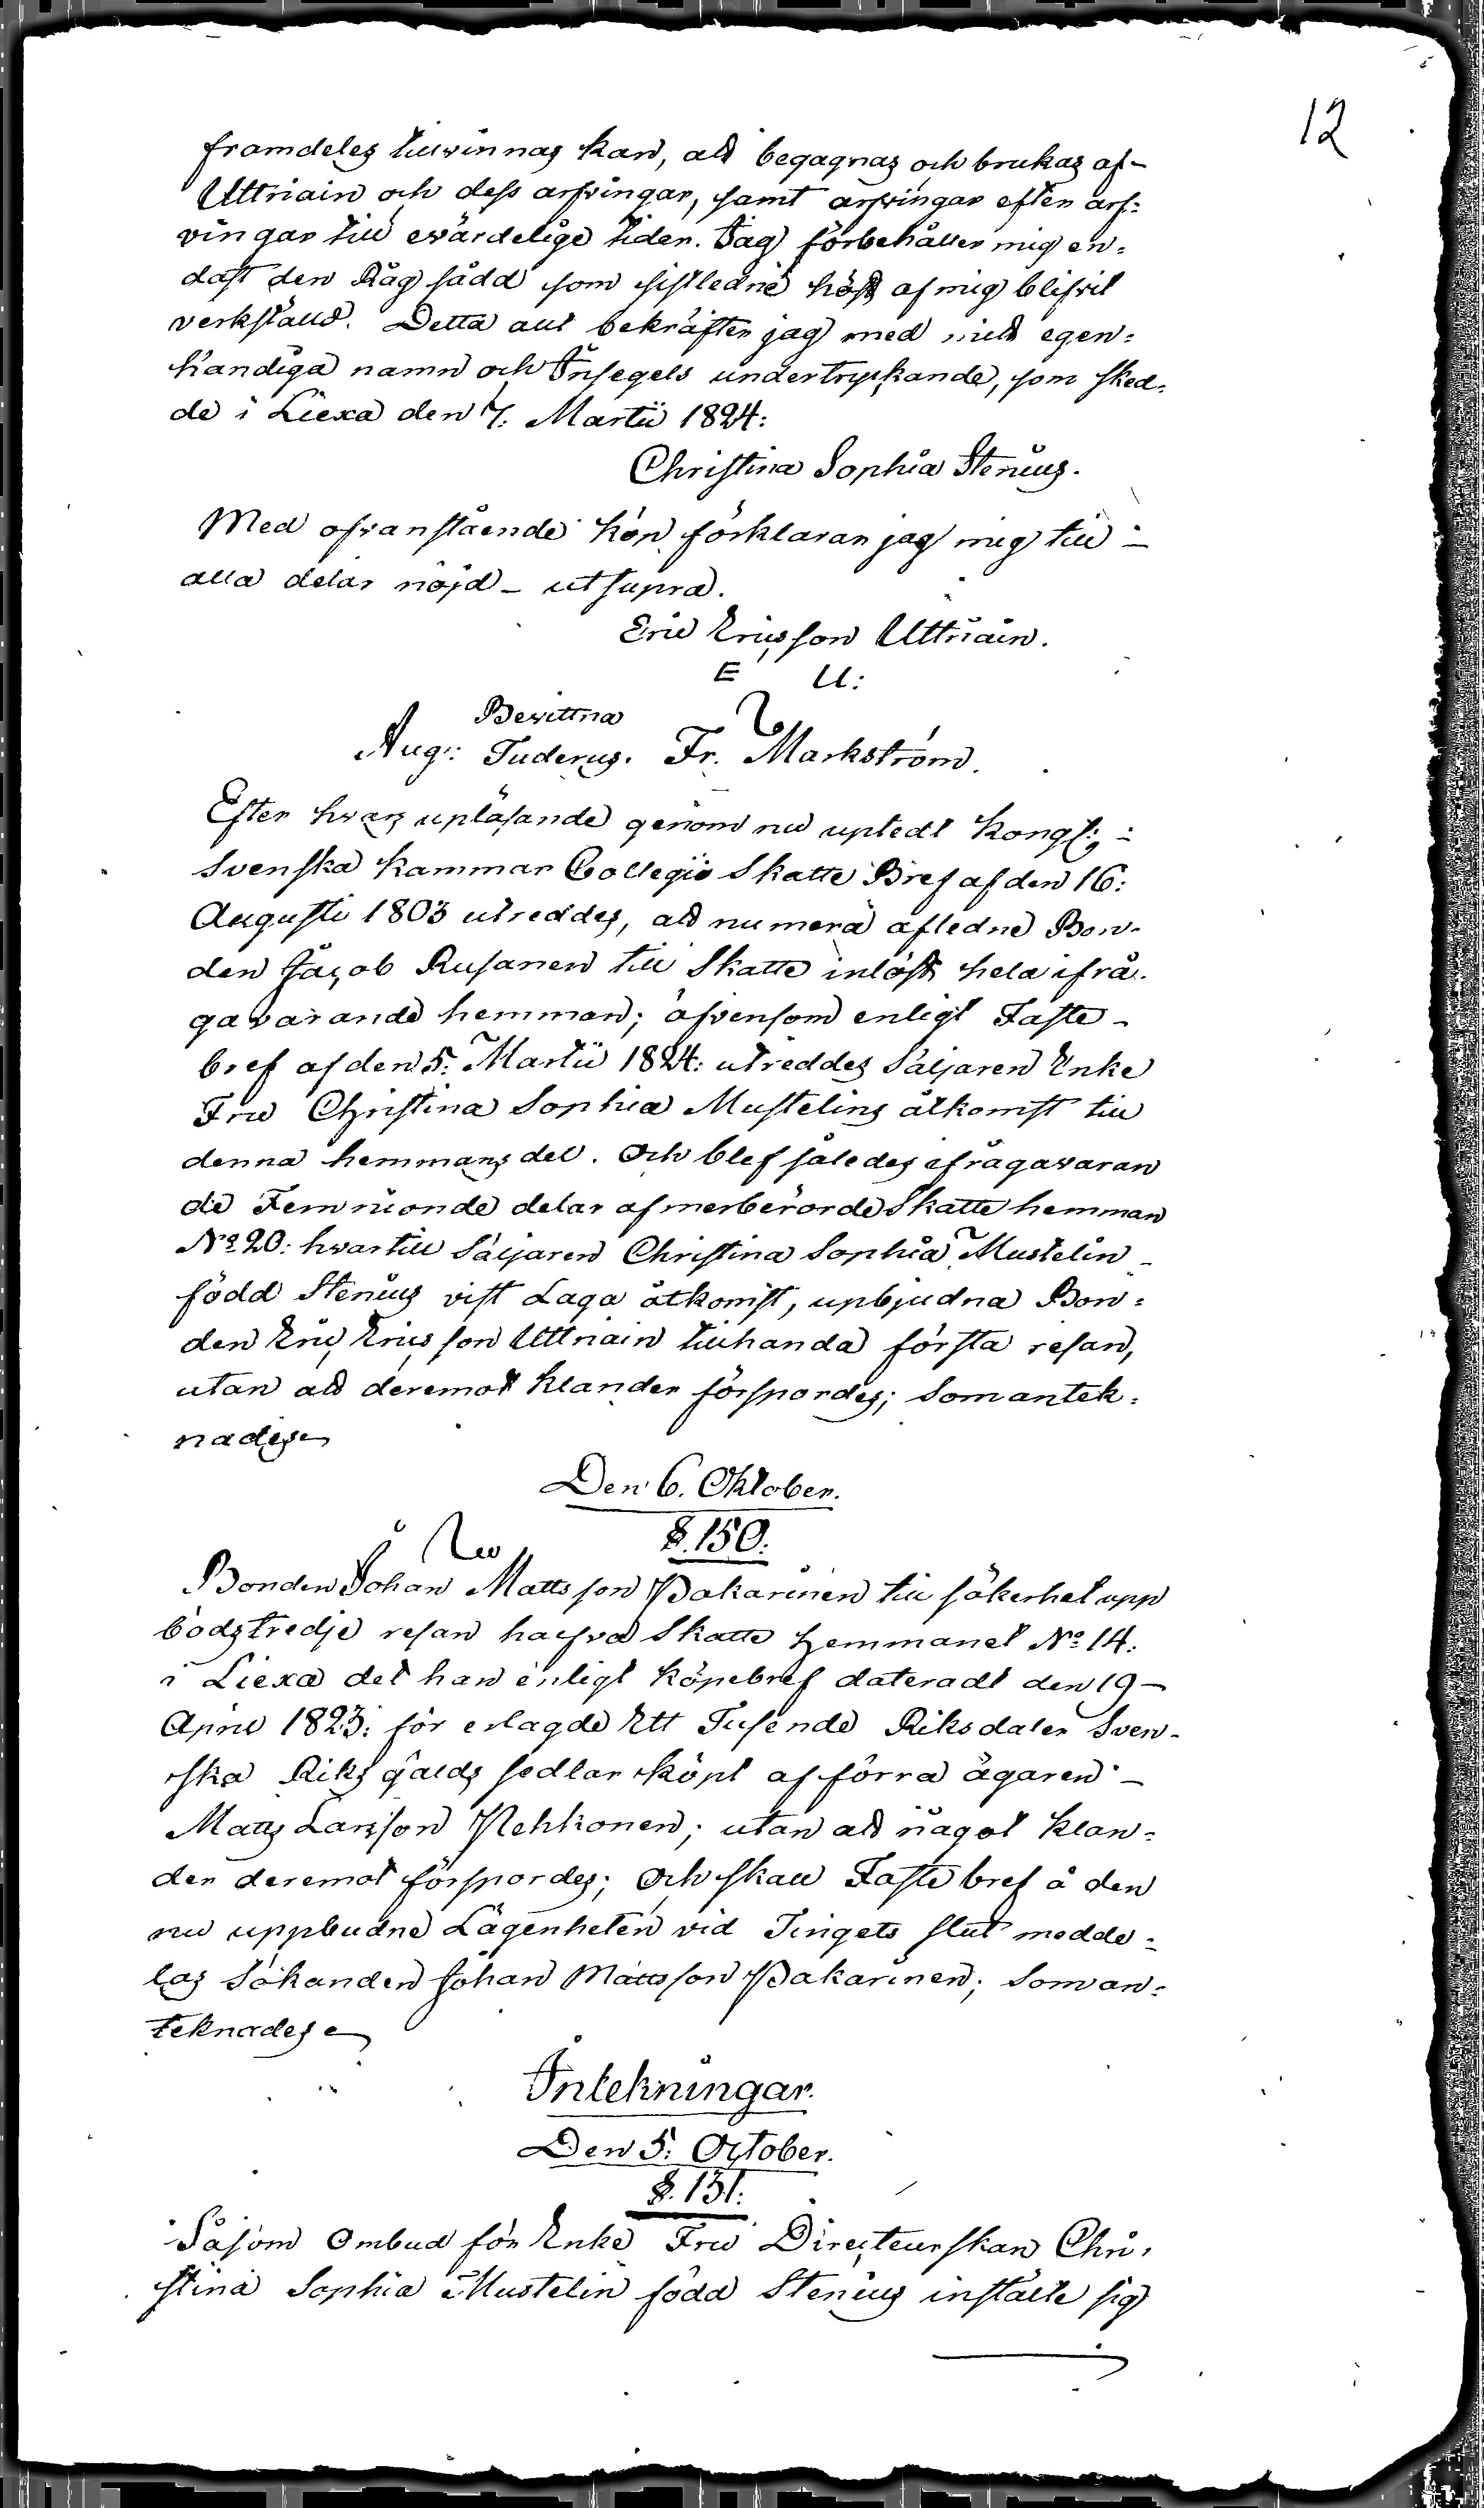 12
framdeles tillvinnas kan, att begagnas och brukas af-
Uttriain och dess arfvingar, samt arfvingar efter arf:
vingar till evärdelige tider. Jag förbehåller mig en:
dast den Råg sådd som sistledne höst af mig blifvit
verkstäld. Detta allt bekräftar jag med mitt egen:
händiga namn och Insegels undertryckande, som sked:
de i Liexa den 7. Martii 1824:
Christina Sophia Stenius.
Med ofvanstående köp förklarar jag mig till -
alla delar nöjd - ut supra.
Eric Ericsson Uttriain.
E U:
Bevittna
Aug: Tuderus. Fr. Markström.
Efter hvars upläsande genom nu uptedt Kongl: -
Svenska Kammar Collegii Skatte Bref af den 16:
Augusti 1803 utreddes, att numera afledne Bon-
den Jacob Rusanen till Skatte inlöst hela ifrå-
gavarande hemman; äfvensom enligt Faste-
bref af den 5. Martii 1824: utreddes Säljaren Enke
Fru Christina Sophia Mustelins åtkomst till
denna hemmans del. Och blef således ifrågavaran
de Femtionde delar af merberörde Skatte hemman
No 20: hvartill Säljaren Christina Sophia Mustelin -
född Stenius vist Laga åtkomst, upbjudna Bon:
den Eric Ericsson Uttriain tillhanda första resan,
utan att deremot klander förspordes; Som antek:
nades
Den 6. Oktober.
§. 150.
Bonden Johan Mattsson Pakarinen till säkerhet upp
böds tredje resan halfva Skatte hemmanet No 14:
i Liexa det han enligt köpebref dateradt den 19 -
April 1823: för erlagde Ett Tusende Riksdaler Sven-
ska Riksgälds sedlar köpt af förra ägaren -
Matts Larsson Nehkonen; utan att något klan:
der deremot förspordes; Och skall Faste bref å den
nu uppbudne Lägenheten vid Tingets slut medde:
las Sökanden Johan Mattsson Pakarinen; Som an:
teknades
Inlekningar.
Den 5. October.
§. 151.
Såsom Ombud för Enke Fru Directeurskan Chri:
stina Sophia Mustelin född Stenius instälte sig